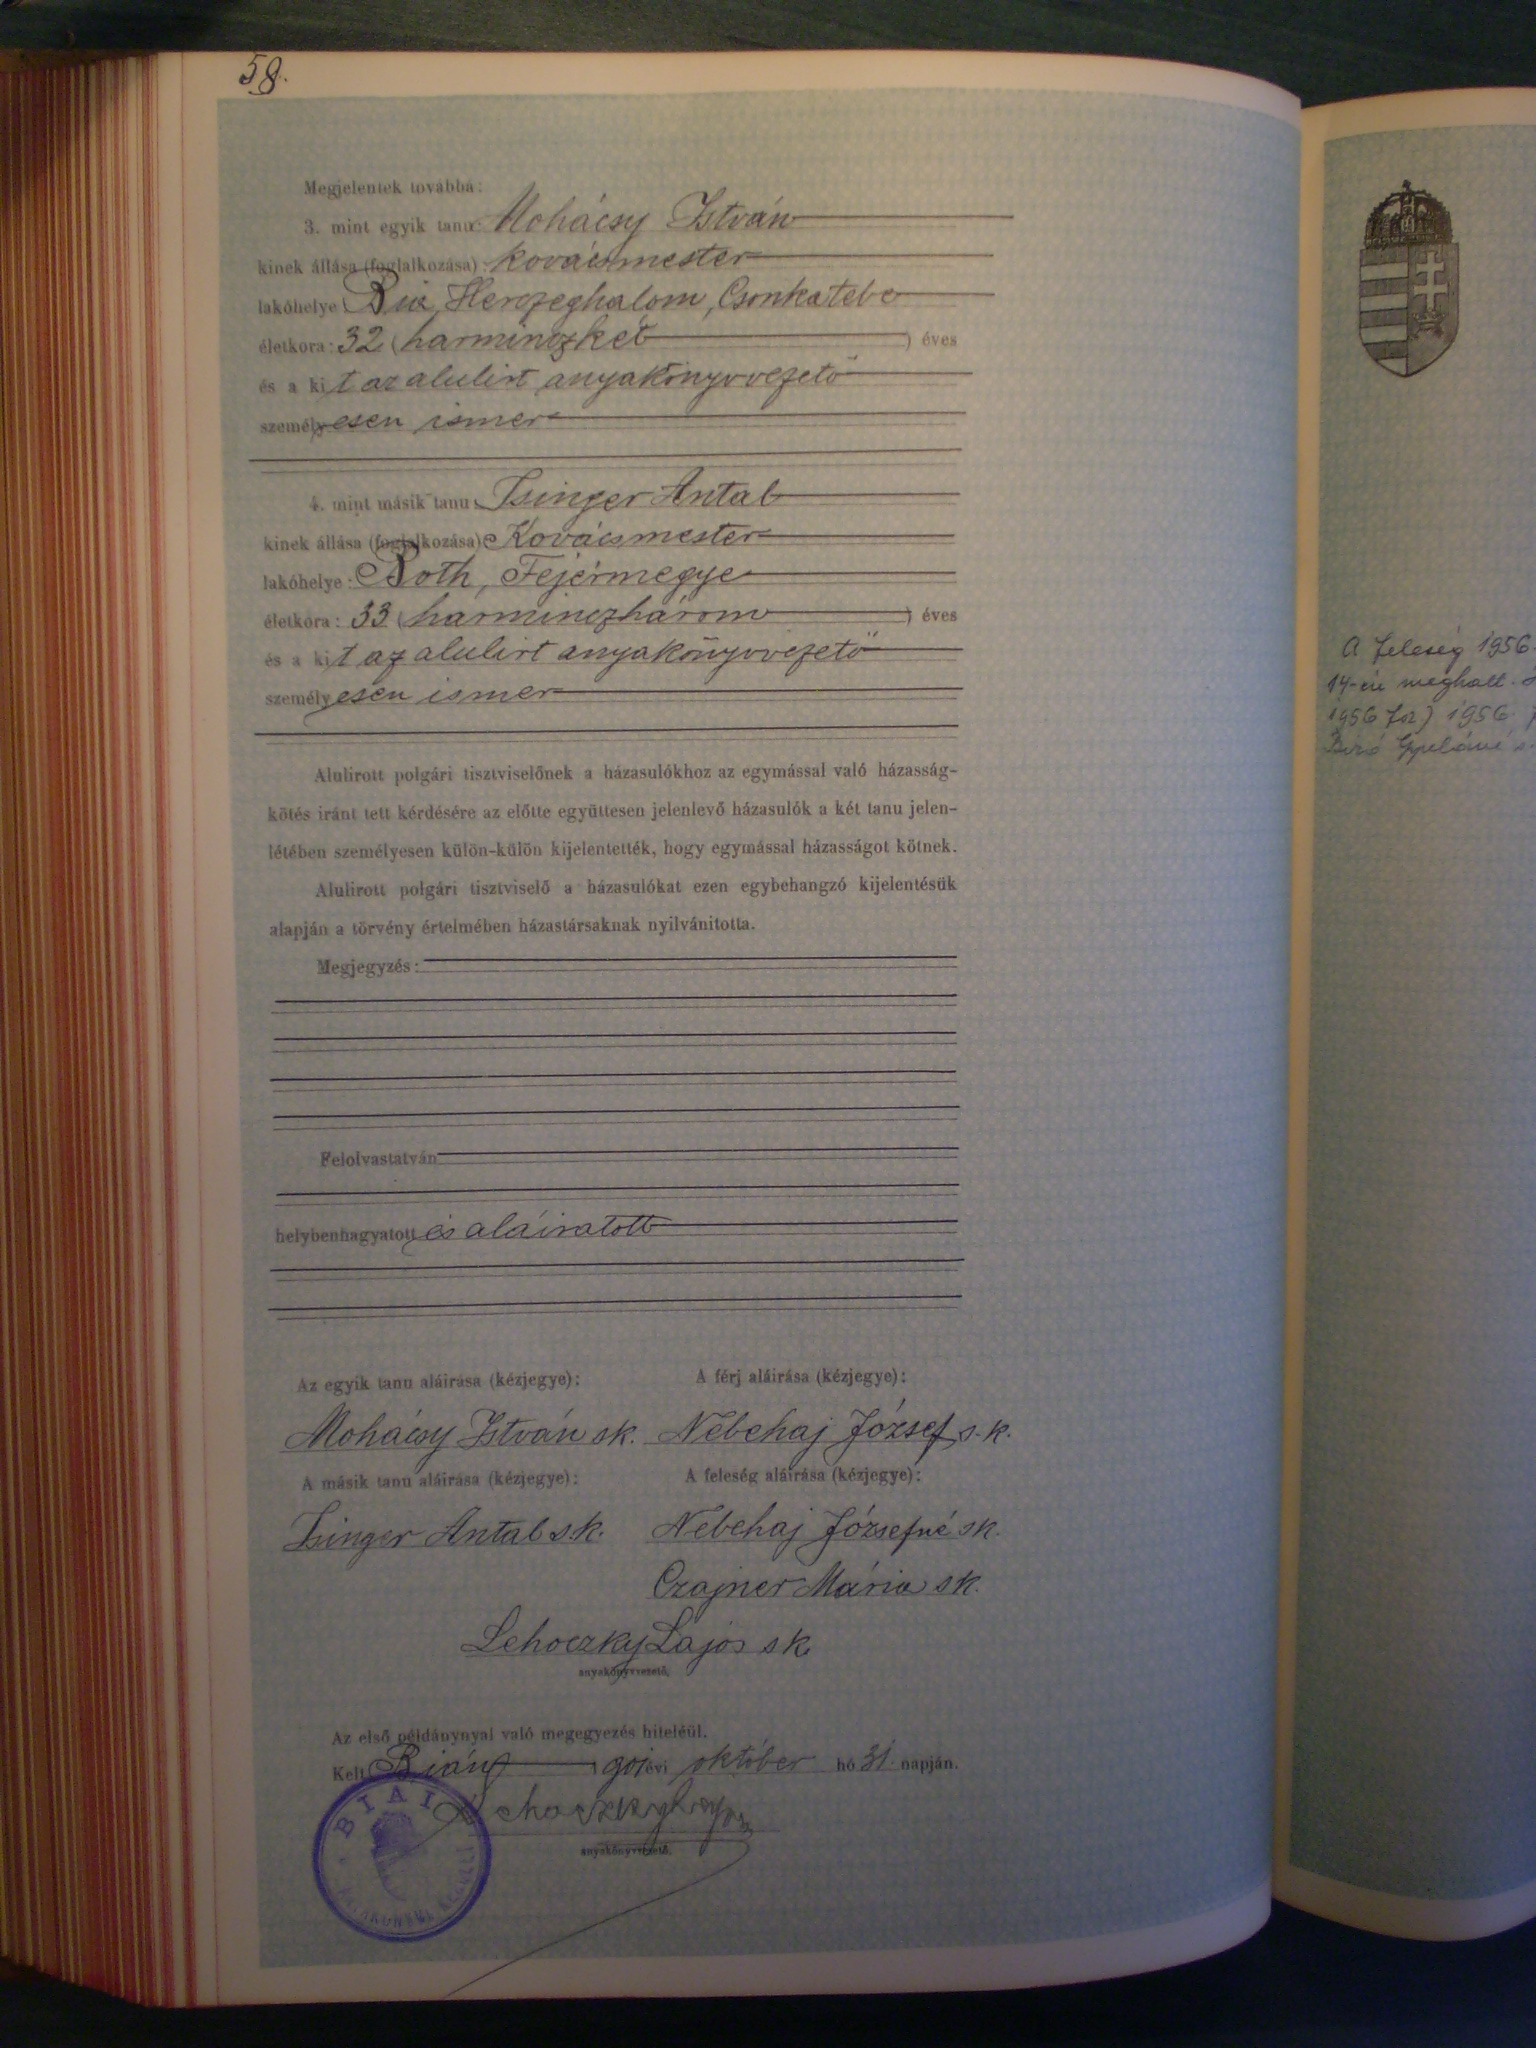 58.
Megjelentek továbbá:
3. mint egyik tanu: Mohácsy István
kinek állása (foglalkozása): kovácsmester
lakóhelye: Bia, Herczeghalom, Csonkatebe
életkora: 32 (harminczkét) éves
és a kit az alulirt anyakönyvvezető
személyesen ismer
4. mint másik tanu: Tsinger Antal
kinek állása (foglalkozása): Kovácsmester
lakóhelye: Both, Fejérmegye
életkora: 33 (harminczhárom) éves
és a kit az alulirt anyakönyvvezető
személyesen ismer
Alulirott polgári tisztviselőnek a házasulókhoz az egymással való házasság-
kötés iránt tett kérdésére az előtte együttesen jelenlevő házasulók a két tanu jelen-
létében személyesen külön-külön kijelentették, hogy egymással házasságot kötnek.
Alulirott polgári tisztviselő a házasulókat ezen egybehangzó kijelentésük
alapján a törvény értelmében házastársaknak nyilvánitotta.
Megjegyzés:
Felolvastatván
helybenhagyatott és aláiratott
Az egyik tanu aláirása (kézjegye): A férj aláirása (kézjegye):
Mohácsy István sk. Nebehaj József s.k.
A másik tanu aláirása (kézjegye): A feleség aláirása (kézjegye):
Tsinger Antal s.k. Nebehaj Józsefné sk.
Czajner Mária sk.
Lehoczky Lajos sk
anyakönyvvezető.
Az első példánynyal való megegyezés hiteléül.
Kelt Bián 1901 évi október hó 31. napján.
Lehoczky Lajos
anyakönyvvezető.
BIAI
A feleség 1956.
14-én meghalt.
1956 1956.
Gyuláné